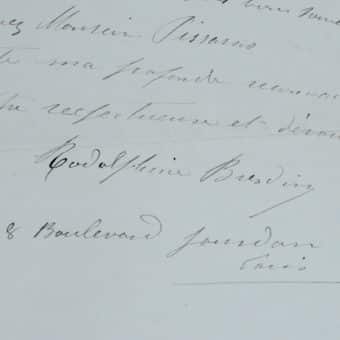 Monsieur Pissarro
ma profonde reconnai
respectueuse et dévou
Rodolphine Bresdin
8 Boulevard Jourdan
Paris